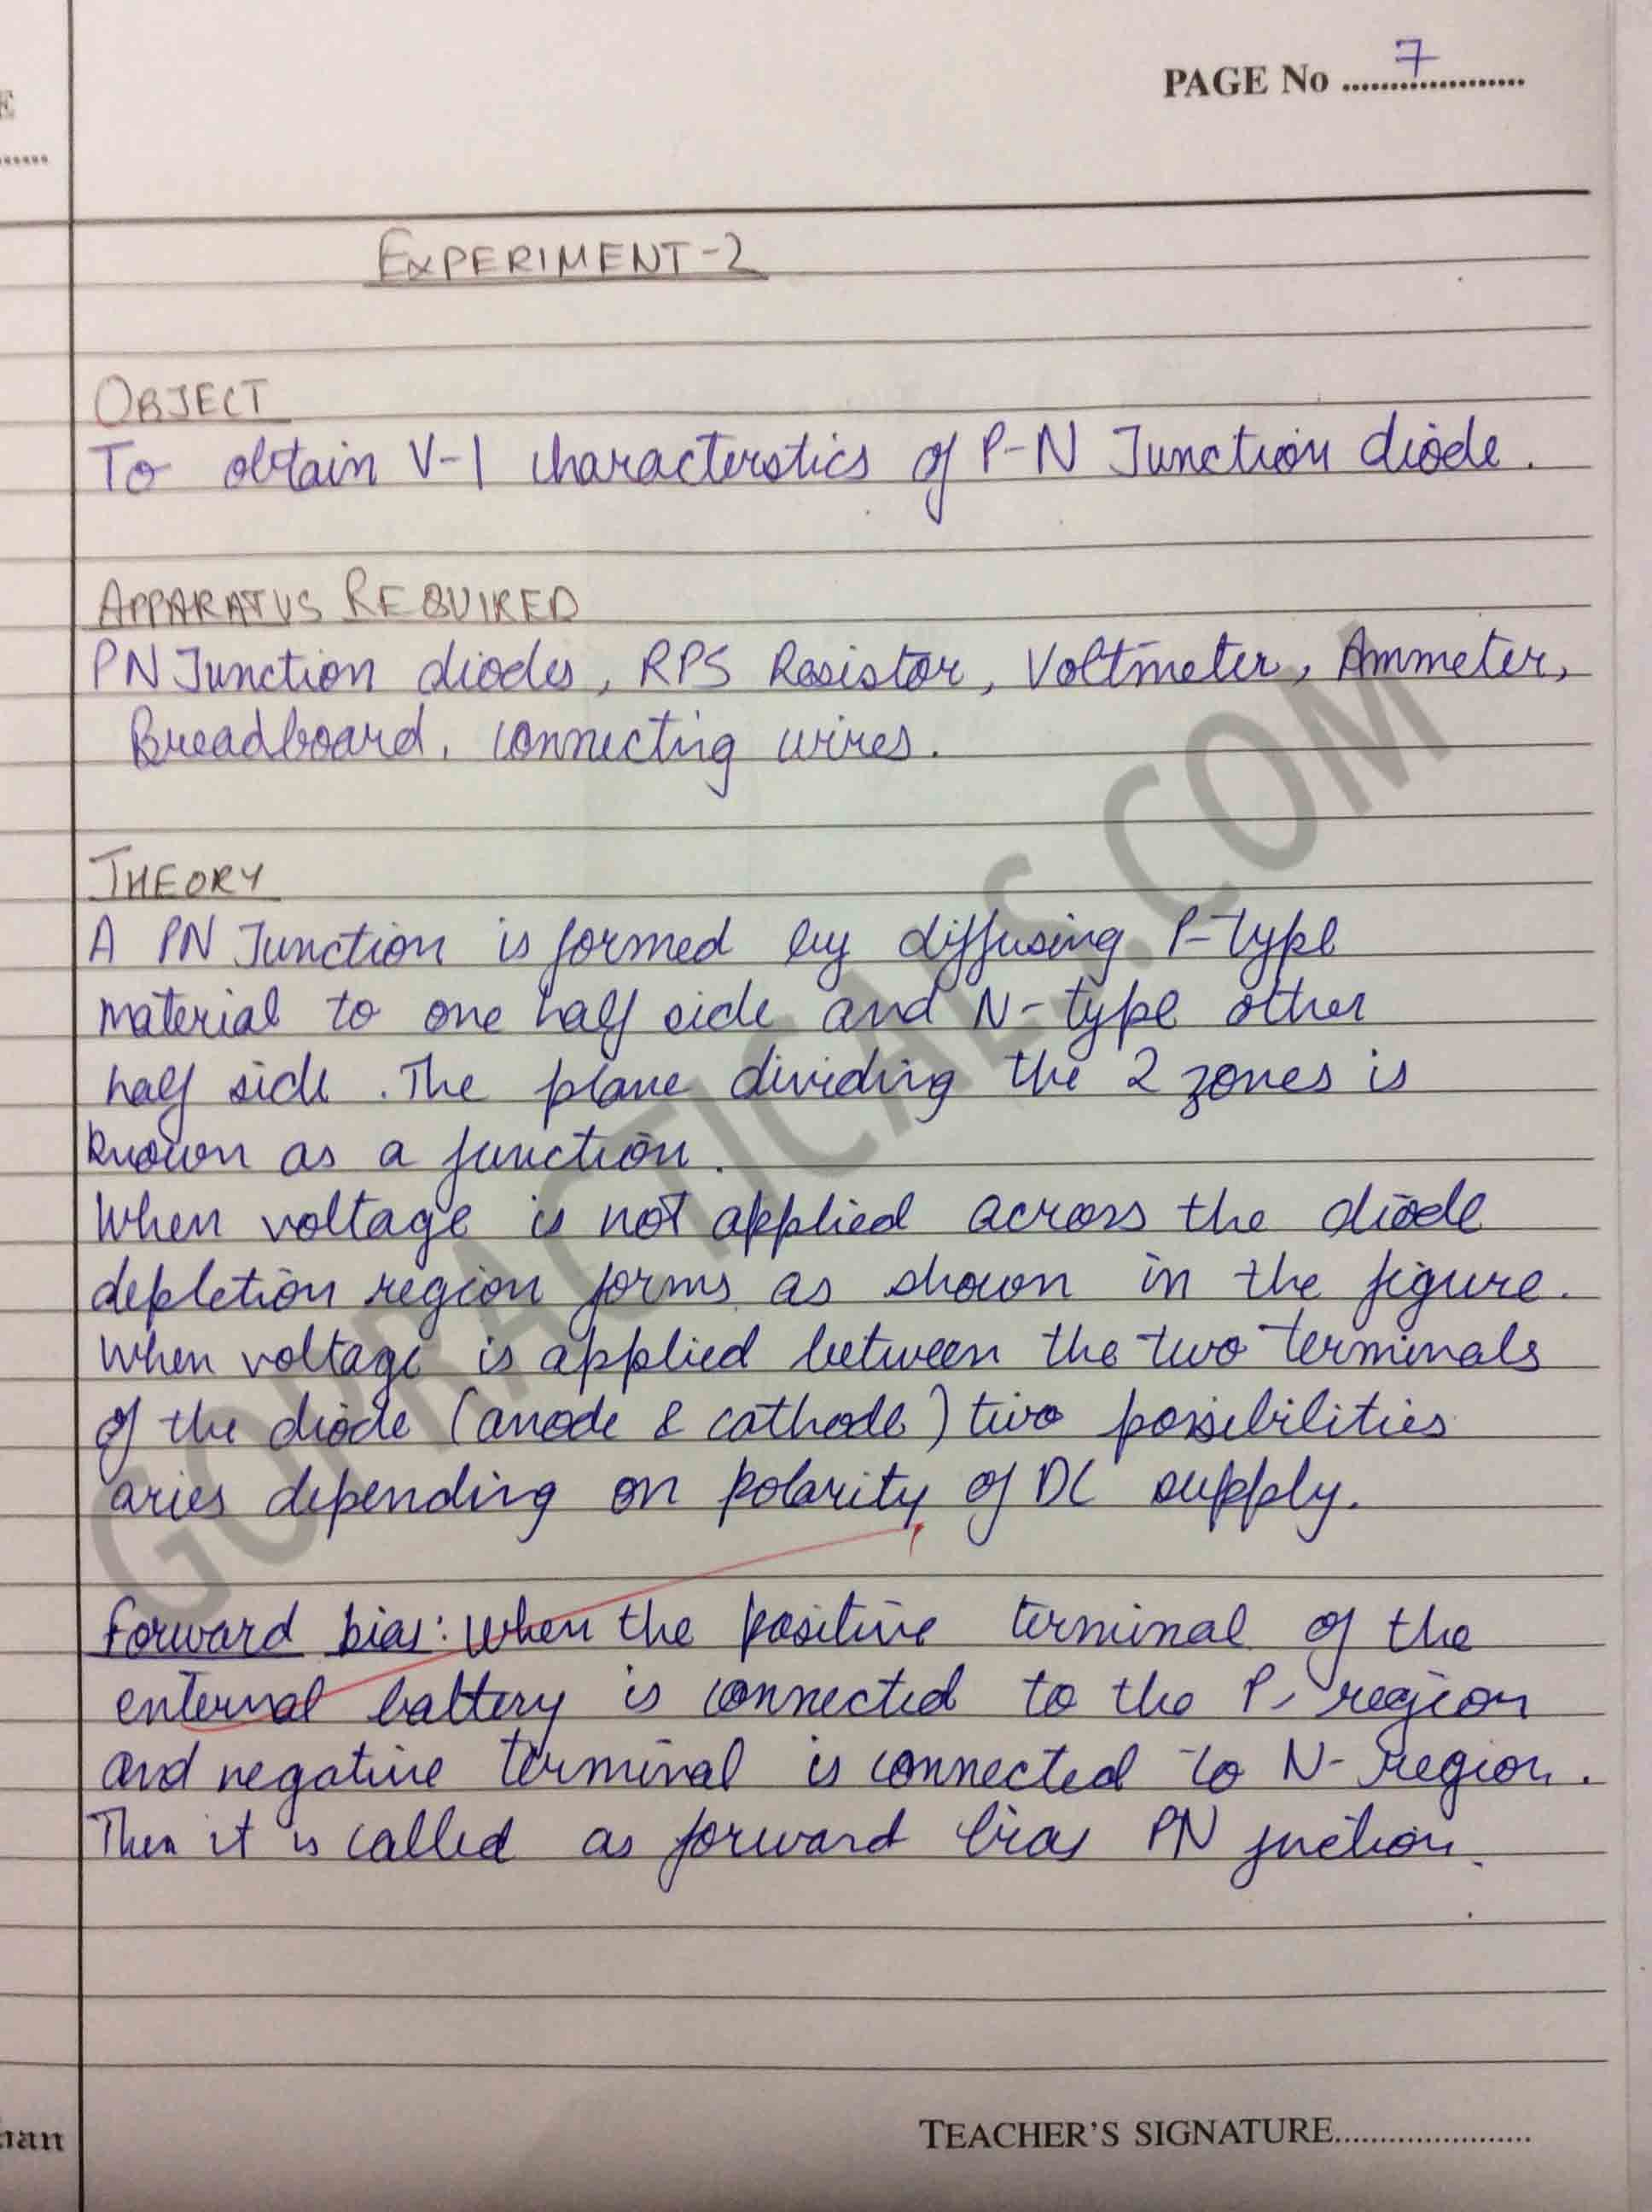 E
......
PAGE No ....7..............
EXPERIMENT-2
OBJECT
To obtain V-I characterstics of P-N Junction diode.
APPARATUS REQUIRED
PN Junction diodes, RPS Resistor, Voltmeter, Ammeter,
Breadboard, connecting wires.
THEORY
A PN Junction is formed by diffusing P-type
material to one half side and N-type other
half side. The plane dividing the 2 zones is
known as a junction.
When voltage is not applied across the diode
depletion region forms as shown in the figure.
When voltage is applied between the two terminals
of the diode (anode & cathode) two possibilities
aries depending on polarity of DC supply.
Forward bias: When the positive terminal of the
enternal battery is connected to the P- region
and negative terminal is connected to N- region.
Then it is called as forward bias PN juction.
GOPRACTICALS.COM
han
TEACHER'S SIGNATURE......................